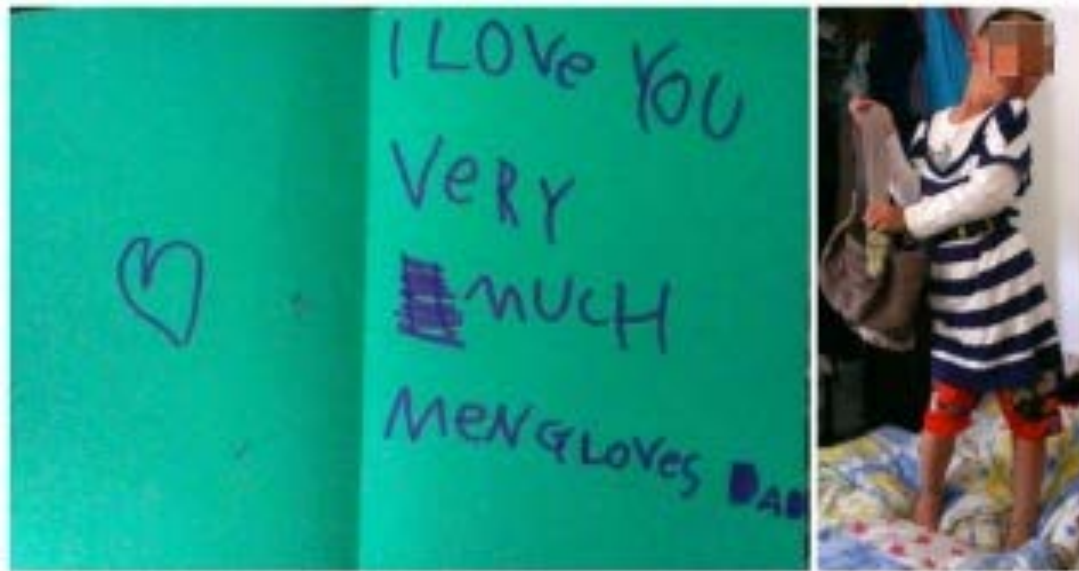 I LOVe YOU
VeRY
MUCH
MeNG LOVes DAD